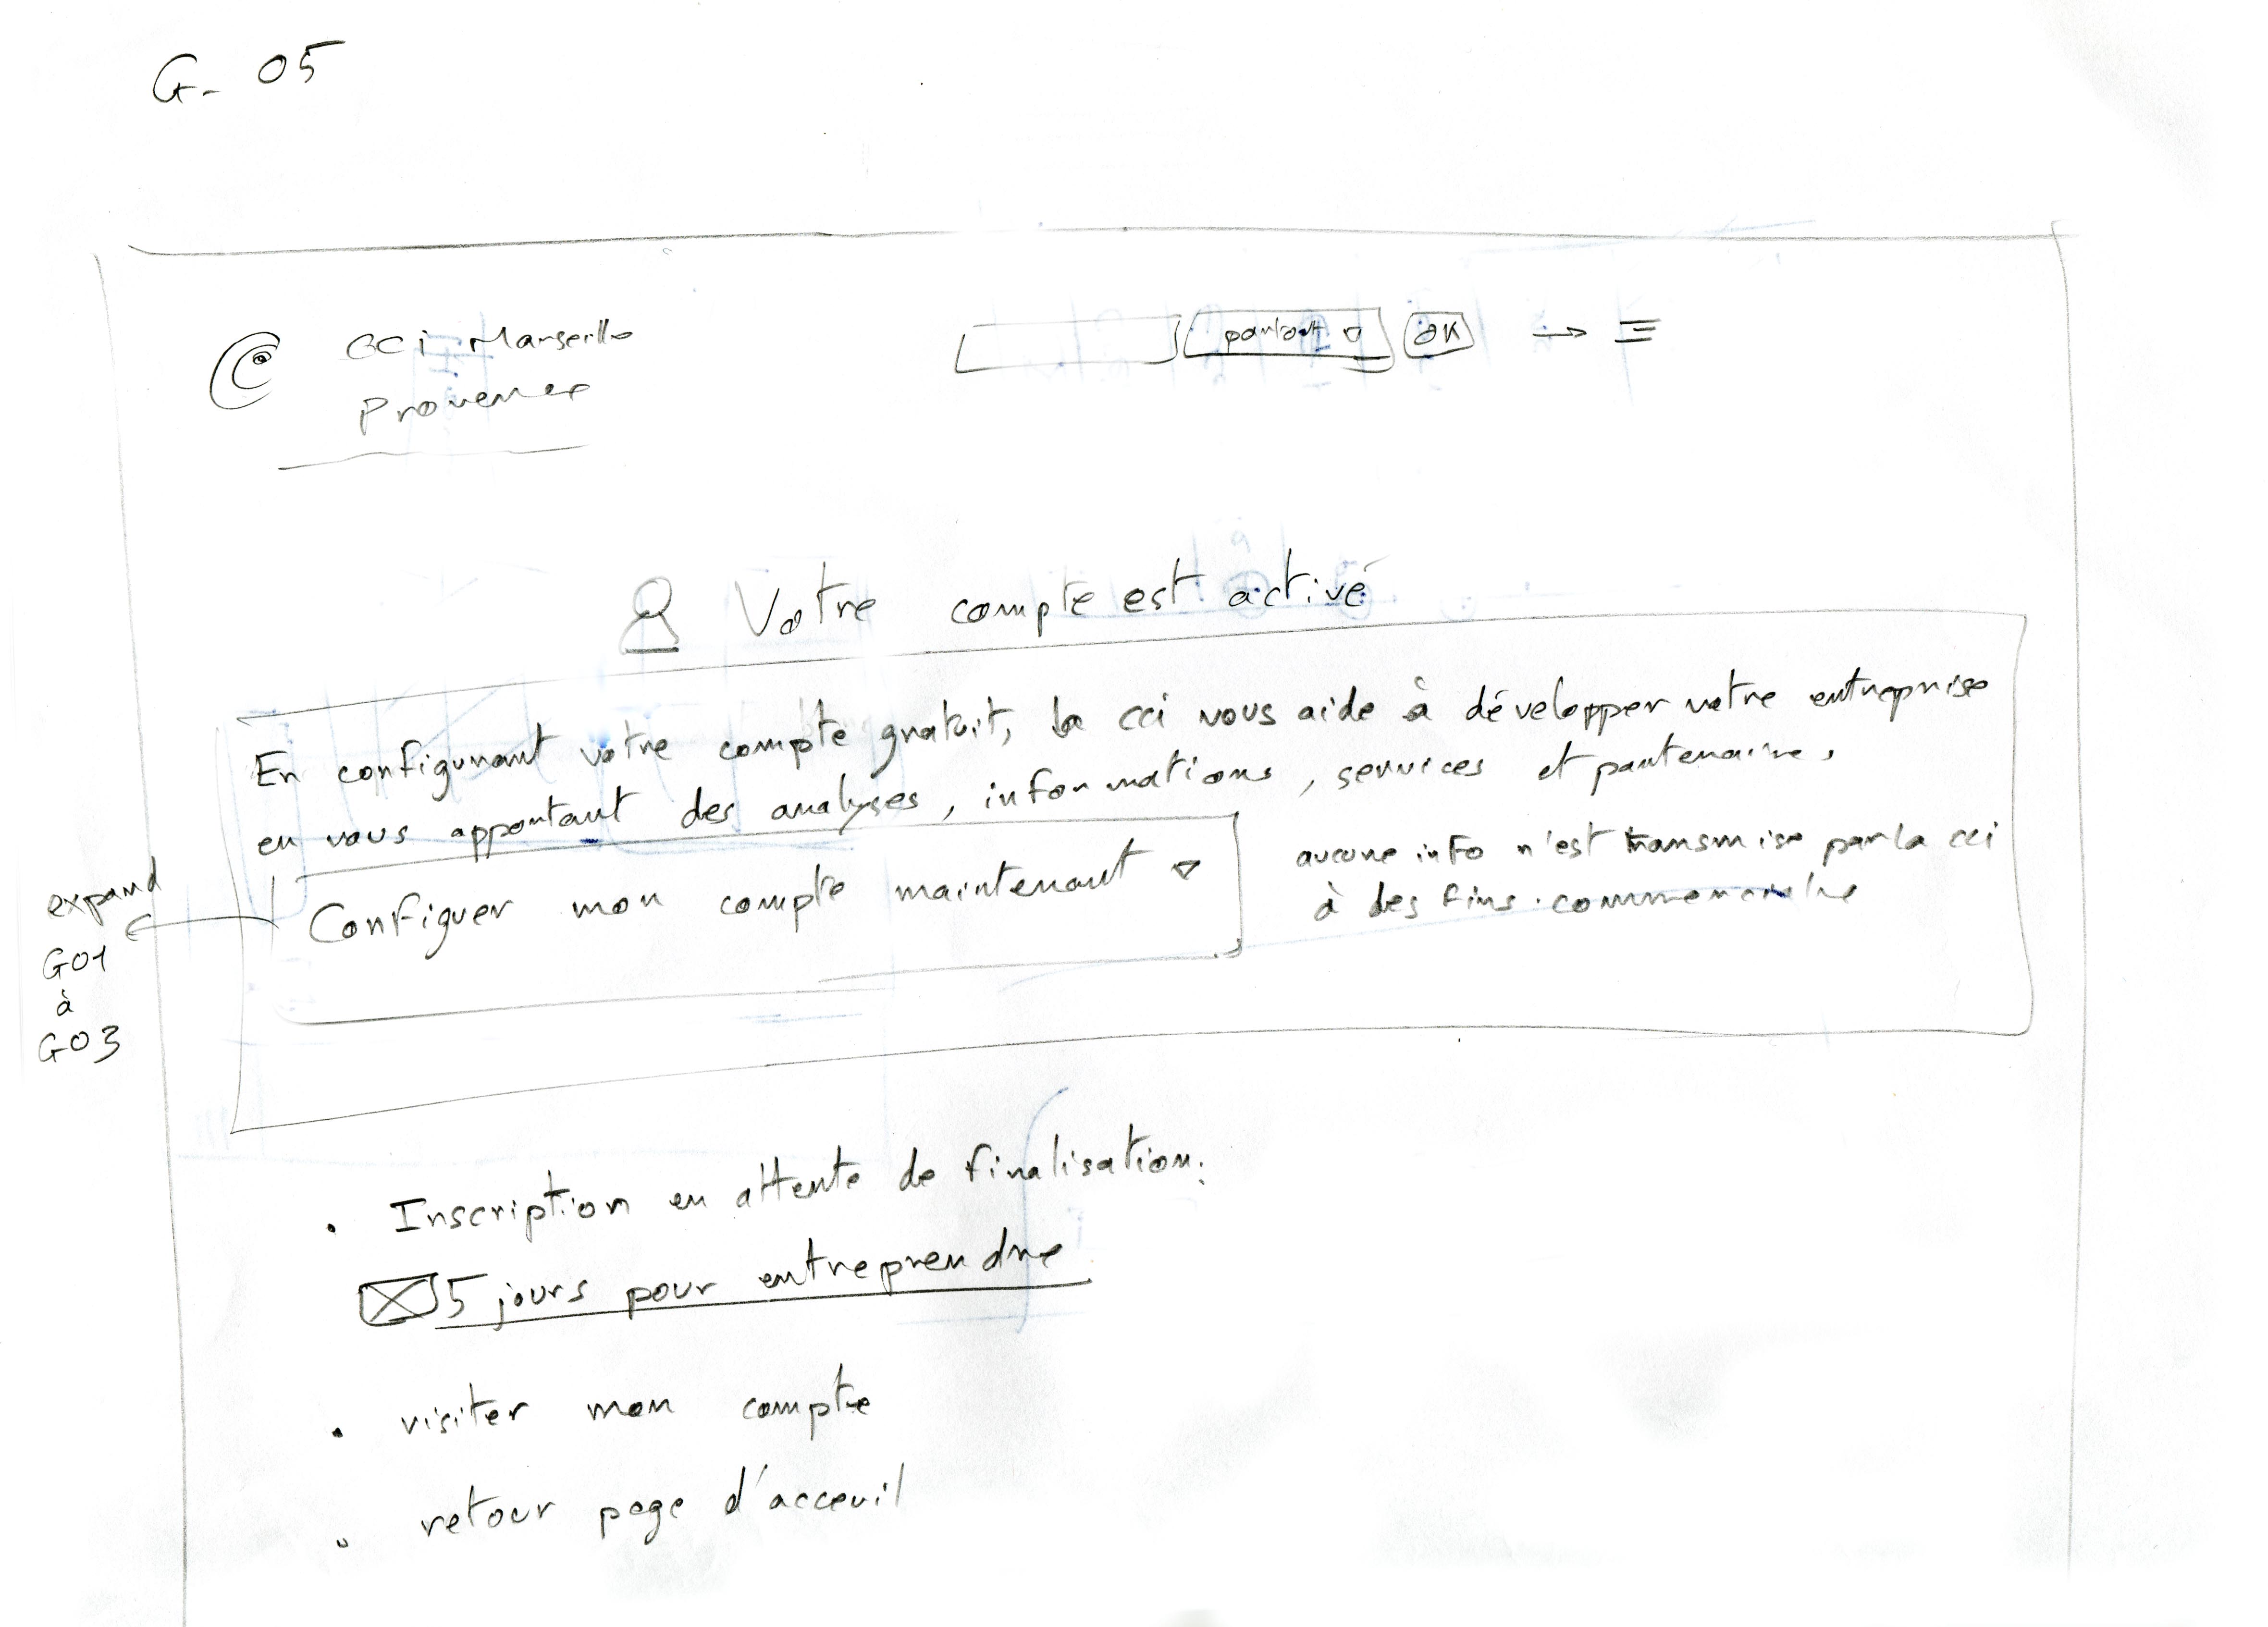 G- 05
CCi Marseille
Provence
partout ▽ OK → ≡
Votre compte est activé
En configurant votre compte gratuit, la cci vous aide à développer votre entreprise
en vous apportant des analyses, informations, services et partenaires
Configuer mon compte maintenant ▽
aucune info n'est transmise par la cci
à des fins commerciales
expand
G01
à
G03
• Inscription en attente de finalisation:
5 jours pour entreprendre
• visiter mon compte
• retour page d'acceuil